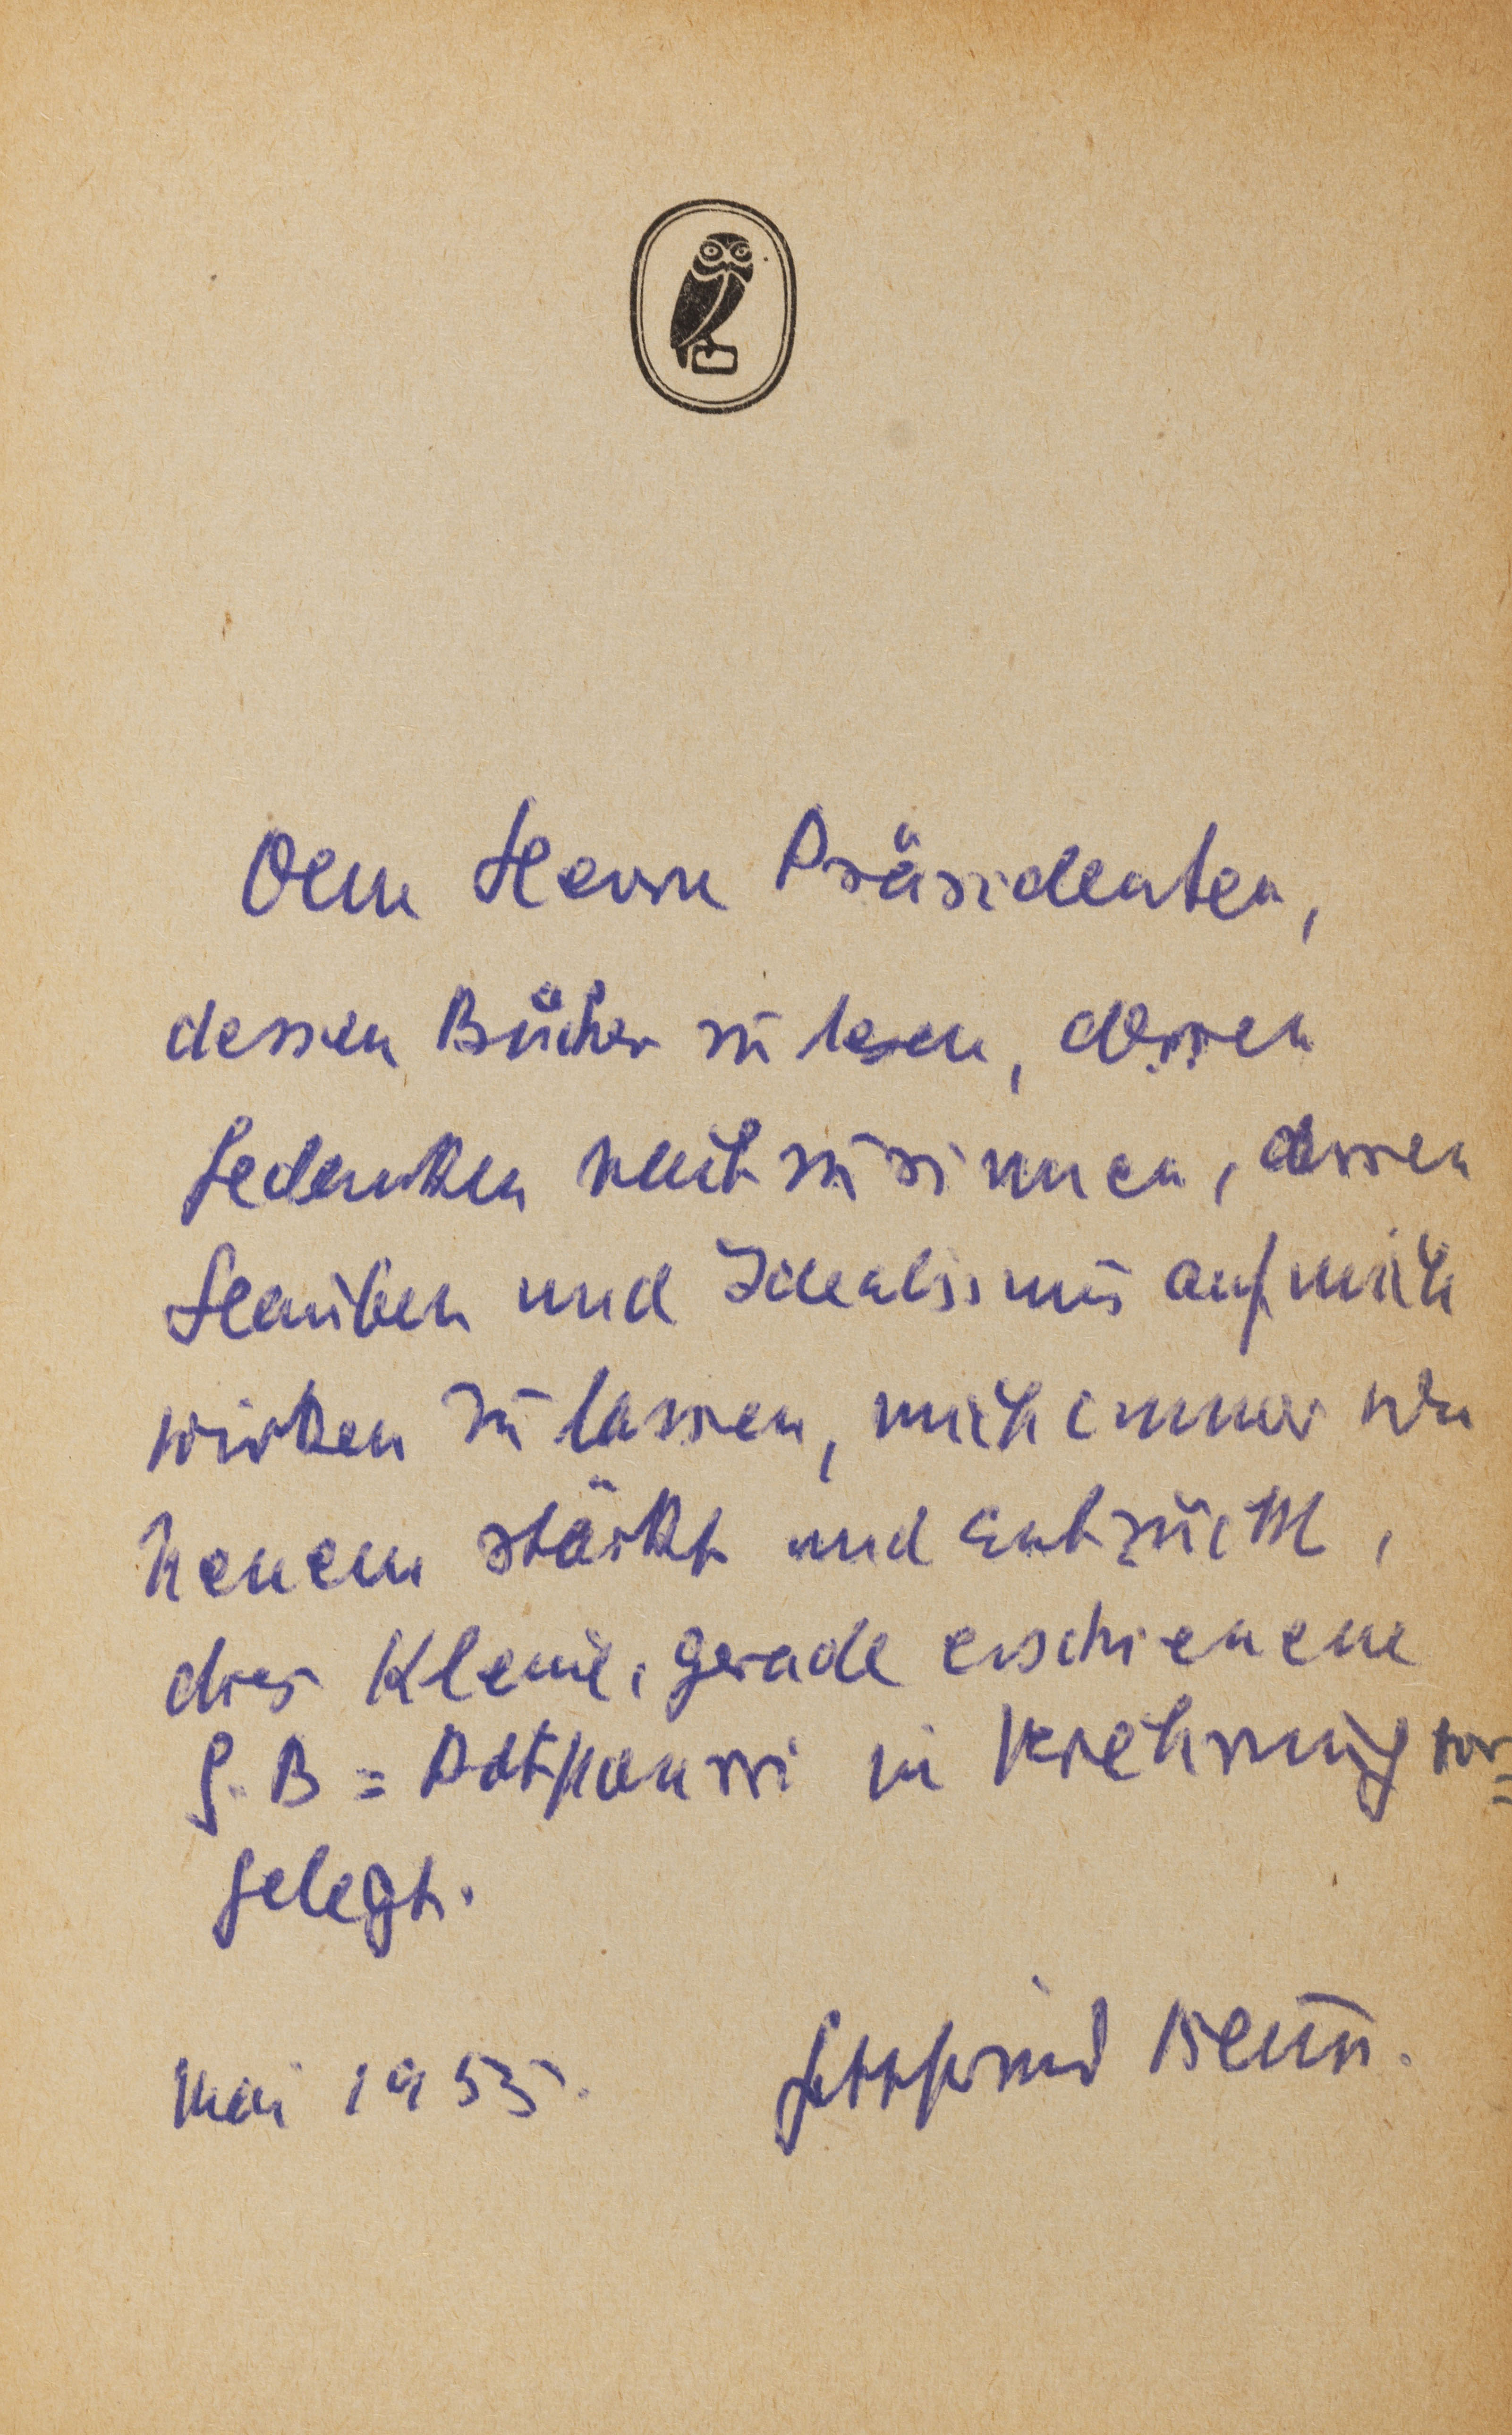 Dem Herrn Präsidenten,
dessen Bücher zu lesen, dessen
Gedanken nachzusinnen, dessen
Glauben und Idealismus auf mich
wirken zu lassen, mich immer von
neuem stärkt und entzückt,
dies kleine, gerade erschienene
G. B = Potpourri in Verehrung vor=
gelegt.
Mai 1955. Gottfried Benn.